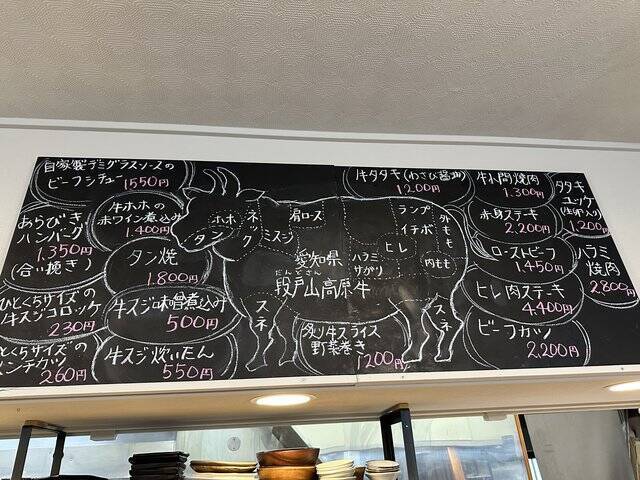 自家製デミグラスソースの
ビーフシチュー 1550円
あらびき
ハンバーグ
1.350円
(合い挽き)
牛ホホの
赤ワイン煮込み
1.400円
タン焼
1.800円
ひとくちサイズの
牛スジコロッケ
230円
牛スジ味噌煮込み
500円
ひとくちサイズの
メンチカツ
260円
牛スジ炊いたん
550円
ホホ
タン
ネック
肩ロース
ミスジ
愛知県
だんどさん
段戸山高原牛
ハラミ
サガリ
ヒレ
ランプ
イチボ
外もも
内もも
スネ
スネ
牛スライス
野菜巻き
1200円
牛タタキ(わさび醤油)
1200円
牛小間焼肉
1.300円
タタキ
ユッケ
1,200円
赤身ステーキ
2,200円
ローストビーフ
1.450円
ハラミ
焼肉
2800円
ヒレ肉ステーキ
4.400円
ビーフカツ
2,200円